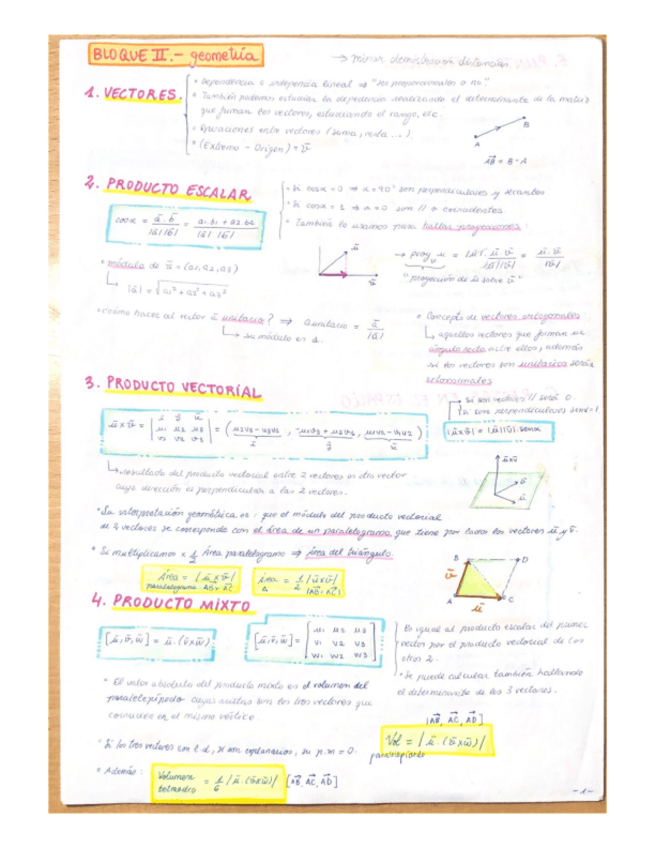 BLOQUE II.- geometría
→ mirar demostración distancias.
1. VECTORES.
• Dependencia e independencia lineal ⇒ "son proporcionales o no".
• También podemos estudiar la dependencia realizando el determinante de la matriz
que forman los vectores, estudiando el rango, etc.
• Operaciones entre vectores (suma, resta ...).
• (Extremo - Origen) = v⃗
A B
AB⃗ = B - A
2. PRODUCTO ESCALAR
cosα = a⃗·b⃗ / |a⃗||b⃗| = a1·b1 + a2·b2 / |a⃗| |b⃗|
• Si cosα = 0 ⇒ α = 90° son perpendiculares y secantes
• Si cosα = 1 ⇒ α = 0 son // o coincidentes
• También lo usamos para hallar proyecciones:
• módulo de a⃗ = (a1, a2, a3)
|a⃗| = √a1² + a2² + a3²
u⃗ v⃗
"proyección de u⃗ sobre v⃗"
• ¿Cómo hacer al vector a⃗ unitario? ⇒ a unitario = a⃗ / |a⃗|
↳ su módulo es 1.
• Concepto de vectores ortogonales:
↳ aquellos vectores que forman un
ángulo recto entre ellos, además
si los vectores son unitarios serán
ortonormales
3. PRODUCTO VECTORIAL
→ si son vectores // será 0.
si son perpendiculares senα=1
|u⃗×v⃗| = |u⃗||v⃗|·senα
↳ resultado del producto vectorial entre 2 vectores es otro vector
cuya dirección es perpendicular a los 2 vectores.
u⃗×v⃗
v⃗
u⃗
• Su interpretación geométrica es: que el módulo del producto vectorial
de 2 vectores se corresponde con el área de un paralelogramo que tiene por lados los vectores u⃗ y v⃗.
• Si multiplicamos × 1/2 Área paralelogramo ⇒ área del triángulo.
Área = |u⃗×v⃗|
paralelogramo AB⃗×AC⃗
área = 1/2 |u⃗×v⃗|
|AB⃗×AC⃗|
B D
v⃗
A u⃗ C
4. PRODUCTO MIXTO
[u⃗,v⃗,w⃗] = u⃗·(v⃗×w⃗)
[u⃗,v⃗,w⃗] =
u1 u2 u3
v1 v2 v3
w1 w2 w3
Es igual al producto escalar del primer
vector por el producto vectorial de los
otros 2.
• Se puede calcular también hallando
el determinante de los 3 vectores.
• El valor absoluto del producto mixto es el volumen del
paralelepípedo cuyas aristas son los tres vectores que
coinciden en el mismo vértice.
[AB⃗, AC⃗, AD⃗]
Vol = |u⃗·(v⃗×w⃗)|
paralelepípedo
• Si los tres vectores son l.d., si son coplanarios, su p.m = 0.
• Además: Volumen tetraedro = 1/6 |u⃗·(v⃗×w⃗)| [AB⃗, AC⃗, AD⃗]
-1-